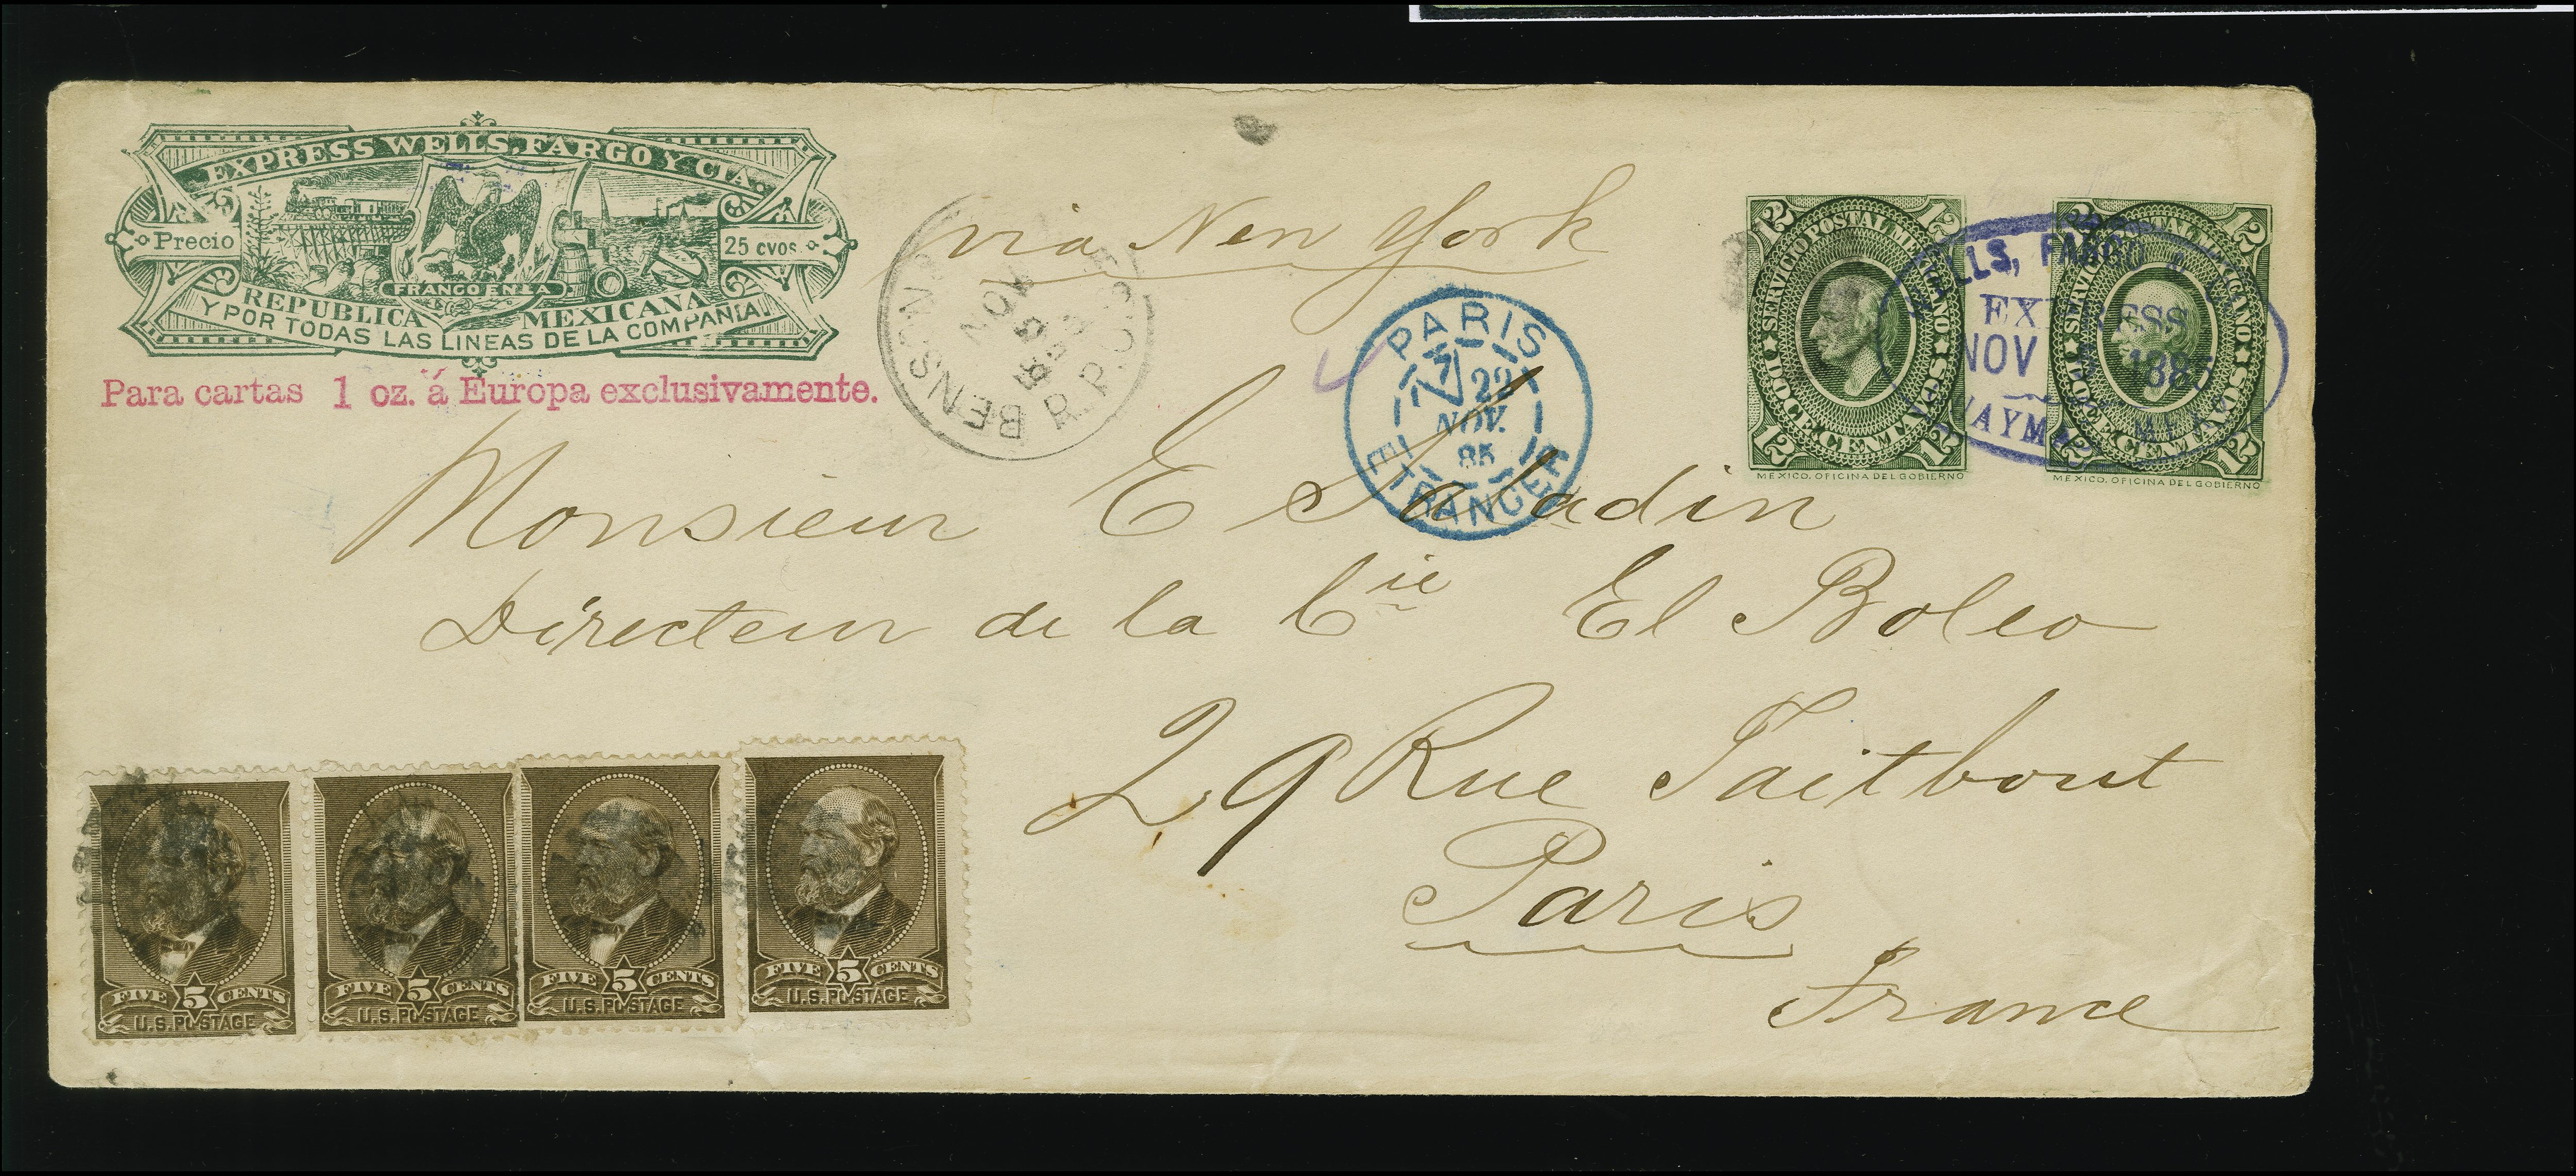 EXPRESS WELLS, FARGO Y CIA.
Precio
25 cvos.
FRANCO EN LA
REPUBLICA MEXICANA
Y POR TODAS LAS LINEAS DE LA COMPAÑIA
Para cartas 1 oz. á Europa exclusivamente.
via New York
BENSON
R.P.O.
NOV
9
1885
PARIS
22
NOV.
85
ETRANGER
12 12
SERVICIO POSTAL MEXICANO
DOCE CENTAVOS
12 12
MEXICO. OFICINA DEL GOBIERNO
12 12
SERVICIO POSTAL MEXICANO
DOCE CENTAVOS
12 12
MEXICO. OFICINA DEL GOBIERNO
WELLS, FARGO &
EXPRESS
NOV 1885
GUAYMAS MEX
Monsieur E Saladin
Directeur de la Cie El Boleo
29 Rue Taitbout
Paris
France
FIVE 5 CENTS
U.S. POSTAGE
FIVE 5 CENTS
U.S. POSTAGE
FIVE 5 CENTS
U.S. POSTAGE
FIVE 5 CENTS
U.S. POSTAGE